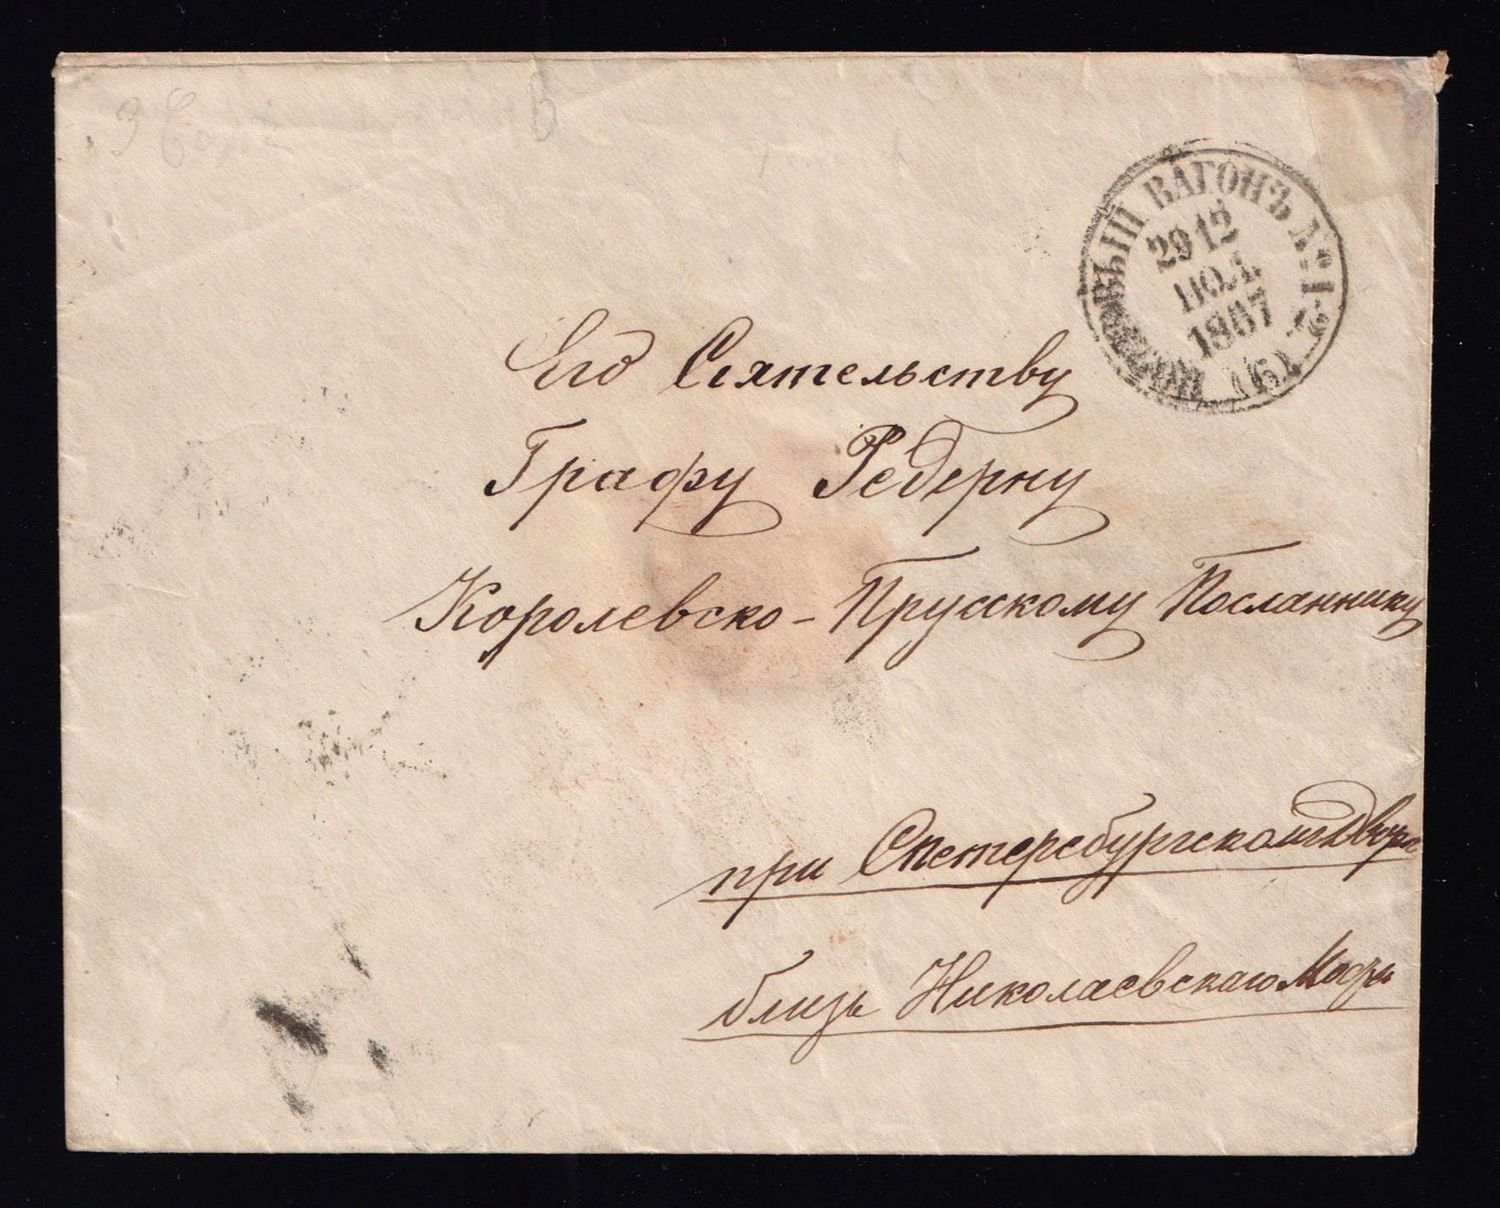 ПОЧТОВЫЙ ВАГОНЪ № 1-2
2912
ІЮЛ.
1867
(Б)
Его Сіятельству
Графу Редерну
Королевско-Прусскому Посланнику
при Спетербургскомъ Дворѣ
близь Николаевскаго